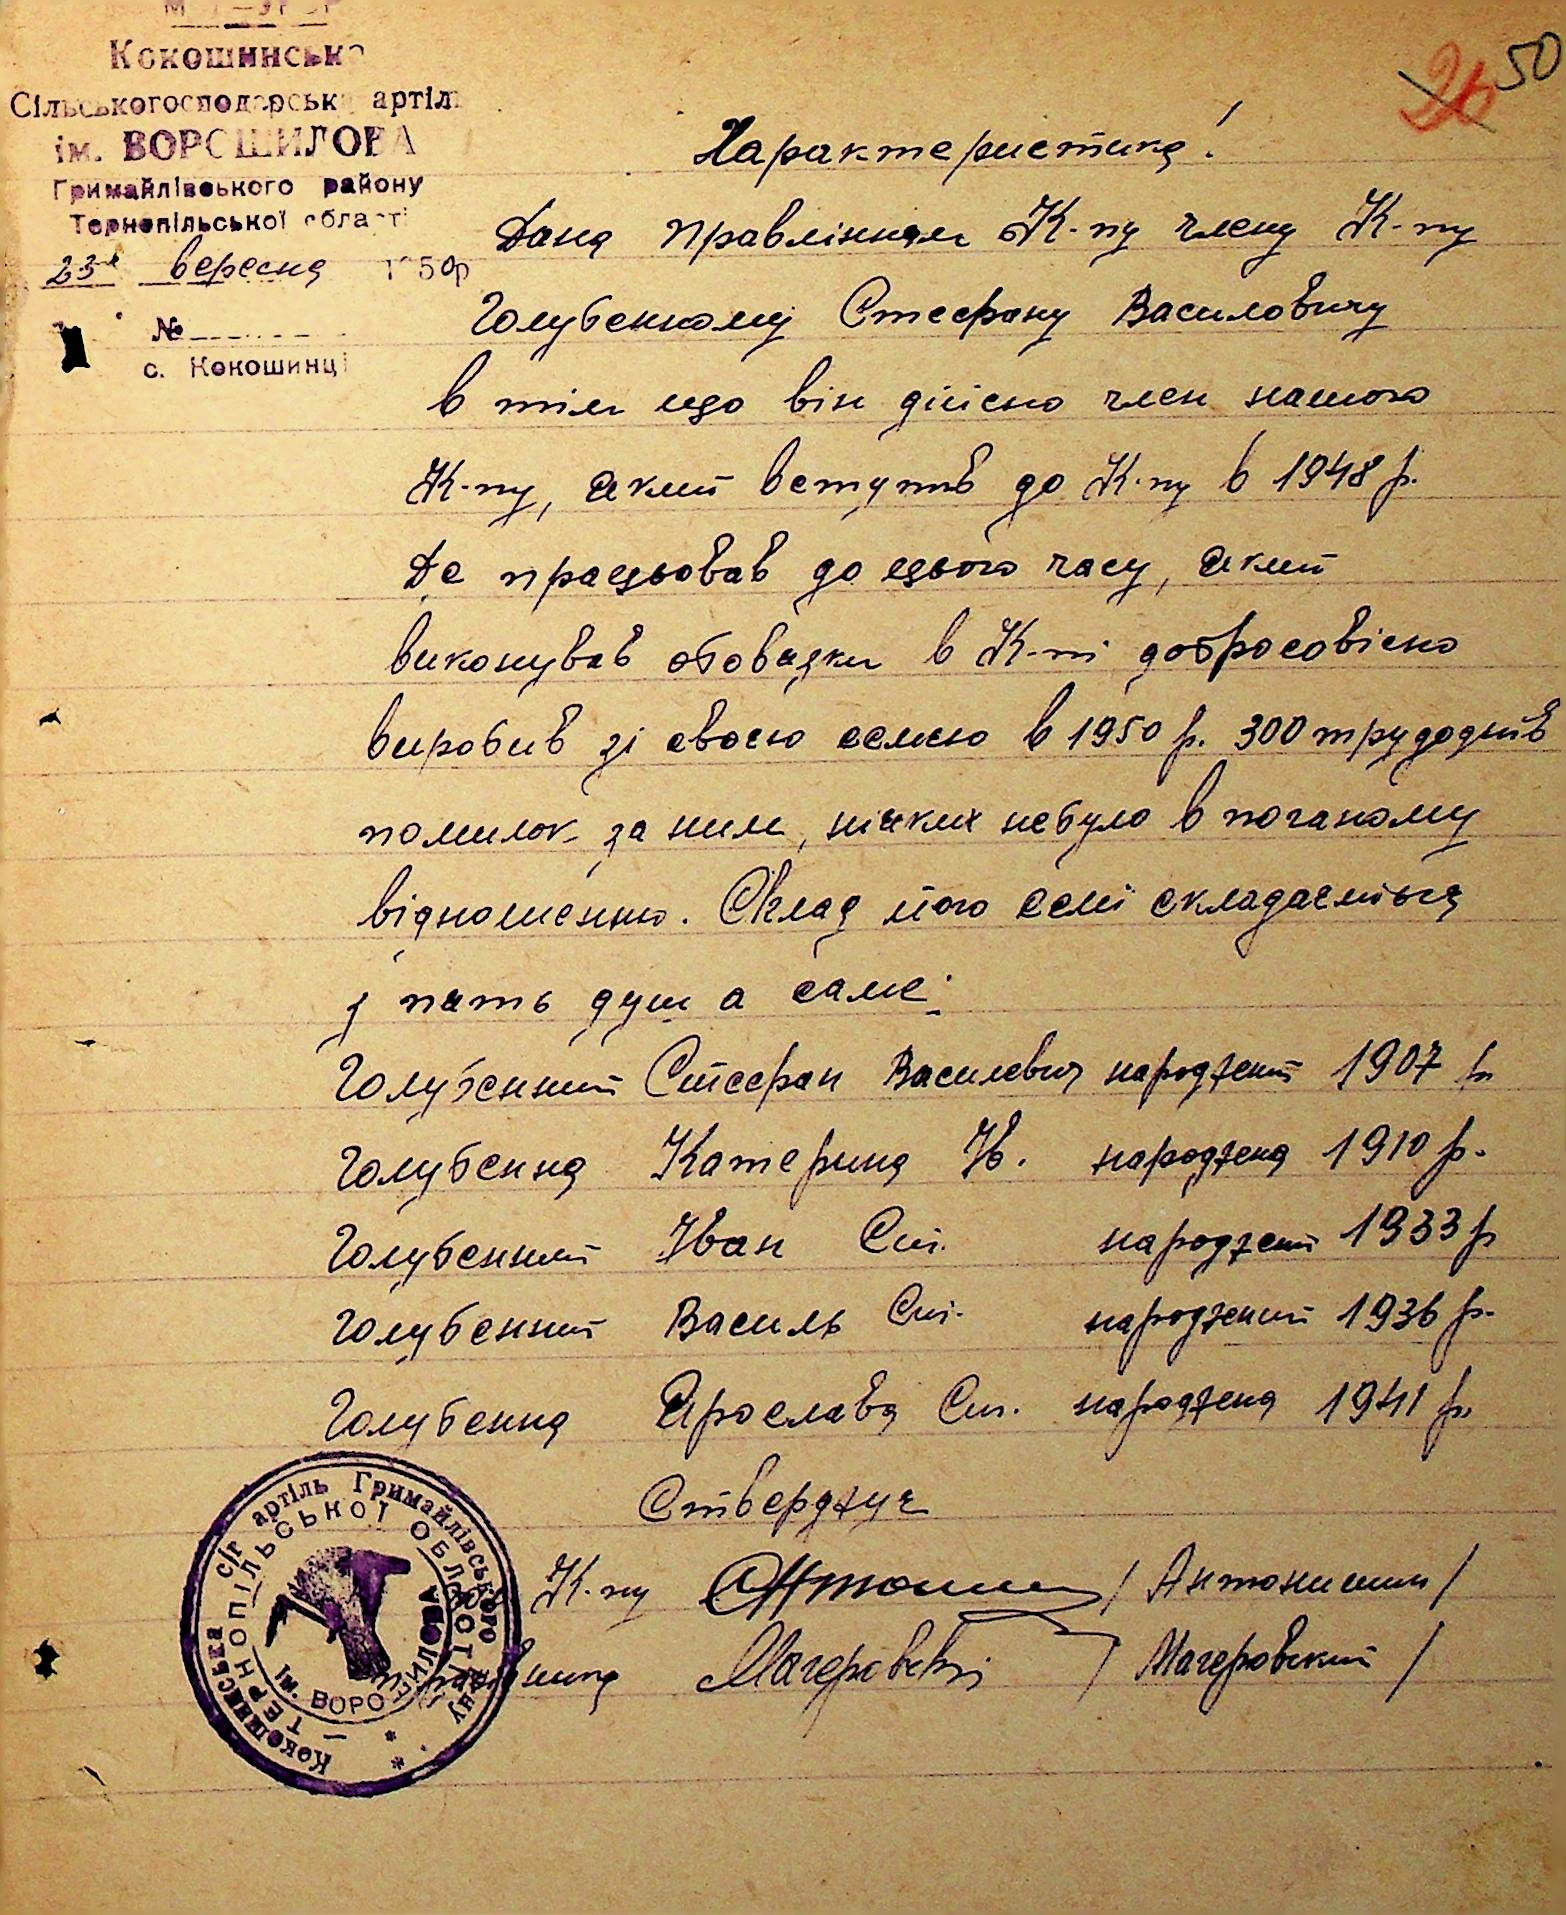 Кокошинська
Сільськогосподарська артіль
ім. ВОРОШИЛОВА
Гримайлівського району
Тернопільської області
23го вересня 1950р
№
с. Кокошинці
26 50
Характеристика!
Дана правлінням К-пу члену К-пу
Голубенному Стефану Василовичу
в тім що він дійсно член нашого
К-пу, який вступив до К-пу в 1948 р.
Де працьовав до цього часу, який
виконував обовязки в К-пі добросовісно
виробив зі своєю семєю в 1950 р. 300 трудоднів
помилок за ним, ніяких небуло в поганому
відношенню. Склад його семї складаємться
з пять душ а саме:
Голубенний Стефан Василевич народжений 1907 р.
Голубенна Катерина Ів. народжена 1910 р.
Голубенний Іван Ст. народжений 1933 р
Голубенний Василь Ст. народжений 1936 р.
Голубенна Ярослава Ст. народжена 1941 р.
Ствержує
К-пу /Антонишин/
Магеровскі /Магеровский/
Кокошинська с/г артіль Гримайлівського району
ТЕРНОПІЛЬСЬКОЇ ОБЛАСТІ
ім. ВОРОШИЛОВА